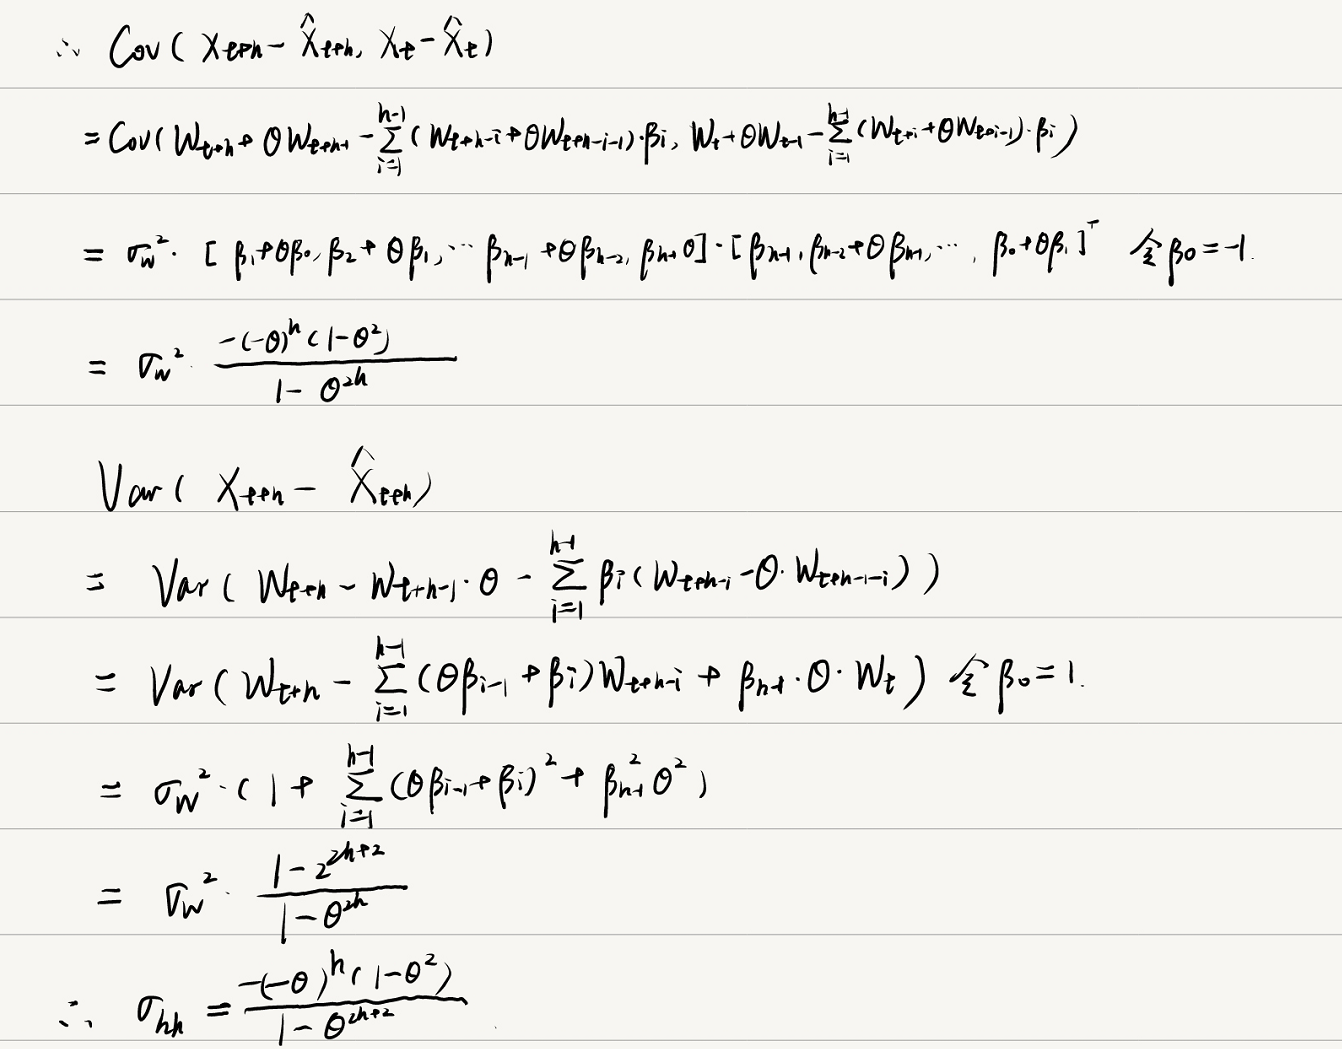 ∴ Cov( X_{t+h} - \hat{X}_{t+h}, X_t - \hat{X}_t )
= Cov( W_{t+h} + θW_{t+h-1} - \sum_{i=1}^{h-1} (W_{t+h-i} + θW_{t+h-i-1})·β_i, W_t + θW_{t-1} - \sum_{i=1}^{h-1} (W_{t+i} + θW_{t+i-1})·β_i )
= σ_w^2 · [ β_1+θβ_0, β_2+θβ_1, ··· β_{h-1}+θβ_{h-2}, β_{h-1}θ ] · [ β_{h-1}, β_{h-2}+θβ_{h-1}, ···, β_0+θβ_1 ]^T 令β_0=-1.
= σ_w^2 · \frac{-(-θ)^h (1-θ^2)}{1-θ^{2h}}
Var( X_{t+h} - \hat{X}_{t+h} )
= Var( W_{t+h} - W_{t+h-1}·θ - \sum_{i=1}^{h-1} β_i ( W_{t+h-i} - θ·W_{t+h-1-i} ) )
= Var( W_{t+h} - \sum_{i=1}^{h-1} (θβ_{i-1} + β_i) W_{t+h-i} + β_{h-1}·θ·W_t ) 令β_0=1.
= σ_W^2 · ( 1 + \sum_{i=1}^{h-1} (θβ_{i-1}+β_i)^2 + β_{h-1}^2 θ^2 )
= σ_w^2 · \frac{1-2^{2h+2}}{1-θ^{2h}}
∴ σ_{hh} = \frac{-(-θ)^h (1-θ^2)}{1-θ^{2h+2}}